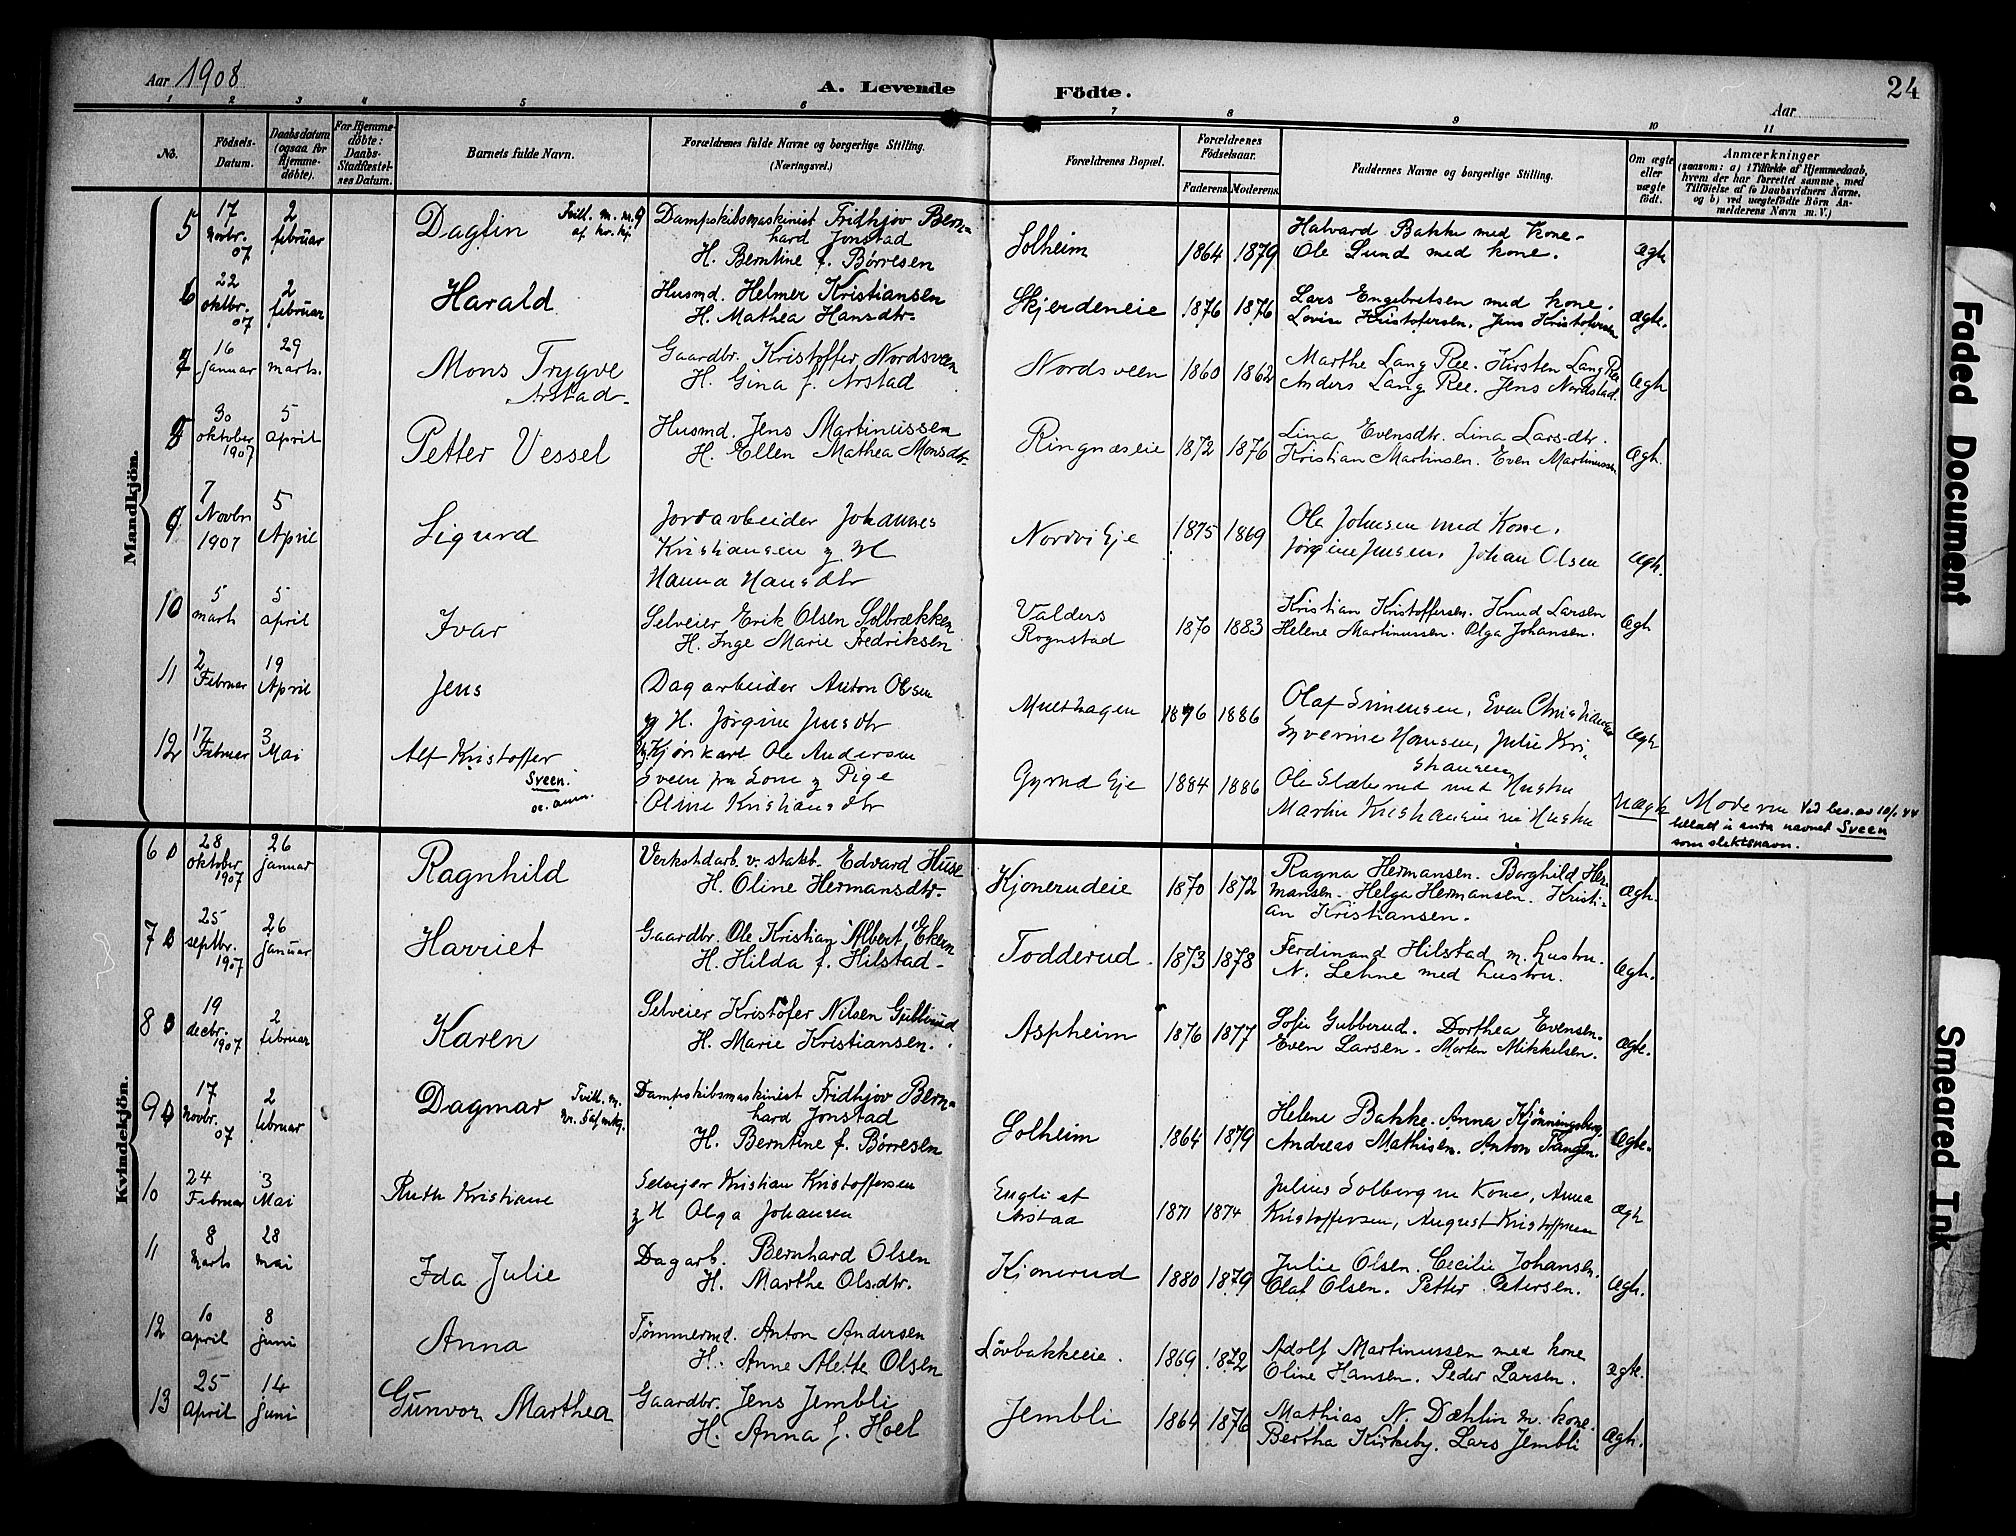 Aar 1908
A. Levende Födte.
Aar
24
1 2 3 4 5 6 7 8 9 10 11
No. Födsels-Datum. Daabsdatum (ogsaa for Hjemme-döbte). For Hjemme-döbte: Daabs-Stadfæstel-ses Datum. Barnets fulde Navn. Forældrenes fulde Navne og borgerlige Stilling. (Næringsvei.) Forældrenes Bopæl. Forældrenes Födselsaar. Faderens. Moderens. Faddernes Navne og borgerlige Stilling. Om ægte eller uægte födt. Anmærkninger (saasom: a) i Tilfælde af Hjemmedaab, hvem der har forrettet samme, med Tilföielse af to Daabsvidners Navne, og b) ved uægtefödte Börn An-melderens Navn m. V.)
Mandkjön.
5 17 Novbr. 07 2 februar Dagfin Tvill. m. n. 9 af kv. kj. Dampskibsmaskinist Fridhjov Bern=
hard Jonstad
H. Berntine f. Børresen Solheim 1864 1879 Halvard Bakke med kone.
Ole Lund med kone. Ægte
6 22 oktbr. 07 2 februar Harald Husmd. Helmer Kristiansen
H. Mathea Hansdtr. Skjerdeneie 1876 1876 Lars Engebretsen med kone.
Lovise Kristofersen. Jens Kristofersen Ægte.
7 16 januar 29 marts. Mons Trygve
Arstad Gaardbr. Kristoffer Nordsveen
H. Gina f. Arstad Nordsveen 1860 1862 Marthe Lang Ree. Kirsten Lang Ree
Anders Lang Ree. Jens Nordstad. Ægte
8 30 oktober 1907 5 april Petter Vessel Husmd. Jens Martinussen
H. Ellen Mathea Monsdtr. Ringnæseie 1872 1876 Lina Evensdtr. Lina Larsdtr.
Kristian Martinsen. Even Martinussen Ægte.
9 7 Novbr 1907 5 April Sigurd Jordarbeider Johannes
Kristiansen og H
Hanna Hansdtr Nordvi Eje 1875 1869 Ole Johnsen med Kone.
Jørgine Jensen. Johan Olsen Ægte.
10 5 marts 5 april Ivar Selveier Erik Olsen Solbrækken
H. Inge Marie Fredriksen Valders
Rognstad 1870 1883 Kristian Kristoffersen. Knud Larsen
Helene Martinussen. Olga Johansen. Ægte
11 2 Februar 19 April Jens Dagarbeider Anton Olsen
og H. Jørgine Jensdtr 1876 1886 Olaf Simensen, Even Christiansen
Syverine Hansen, Julie Kri-
stiansen Ægte
12 17 Februar 3 Mai Alf Kristoffer
Sveen.
se. anm. Ug. Kjørikarl Ole Andersen
Sveen fra Lom og Pige
Oline Kristiansdtr Gyrud Eje 1884 1886 Ole Slæterud med Hustru
Martin Kristiansen m Hustru Uægte Moderen Ved bev. av 10/1 44
tillatt å anta navnet Sveen
som slektsnavn.
Kvindekjön.
6 28 oktober 1907 26 januar Ragnhild Verkstdarb. v. statsb. Edvard Huse
H. Oline Hermansdtr. Kjonerudeie 1870 1872 Ragna Hermansen. Borghild Her-
mansen. Helga Hermansen. Kristi-
an Kristiansen. Ægte.
7 25 septbr. 1907 26 januar Harriet Gaardbr. Ole Kristian Albert Ekern
H. Hilda f. Hilstad Todderud. 1873 1878 Ferdinand Hilstad m. hustru.
N. Lehne med hustru. Ægte.
8 19 decbr. 1907 2 februar Karen Selveier Kristofer Nilsen Gubberud
H. Marie Kristiansen. Aspheim 1876 1877 Sofie Gubberud. Dorthea Evensen.
Even Larsen. Morten Mikkelsen. Ægte.
9 17 Novbr. 07 2 februar Dagmar Tvill. m. nr. 5 af mkj. Dampskibsmaskinist Fridhjov Bern=
hard Jonstad
H. Berntine f. Børresen Solheim 1864 1879 Helene Bakke. Anna Kjønningsberg.
Andreas Mathisen. Anton Tangen. Ægte.
10 24 Februar 3 Mai Ruth Kristiane Selveier Kristian Kristoffersen
og H Olga Johansen Engli af
Arstad 1871 1874 Julius Solberg m Kone, Anna
Kristoffersen, August Kristoffersen Ægte
11 8 marts 28 mai Ida Julie Dagarb. Bernhard Olsen
H. Marthe Olsdtr. Kjonerud 1880 1879 Julie Olsen. Cecilie Johansen.
Olaf Olsen. Petter Petersen. Ægte.
12 10 april 8 juni Anna Tømmermd. Anton Andersen
H. Anne Alette Olsen Løvbakkeeie. 1869 1872 Adolf Martinussen med kone
Oline Hansen. Peder Larsen. Ægte.
13 25 april 14 juni Gunvor Marthea Gaardbr. Jens Jembli
H. Anna f. Hoel Jembli 1864 1876 Mathias N. Dæhlin m. kone.
Bertha Kirkeby. Lars Jembli Ægte.
Faded Document
Smeared Ink